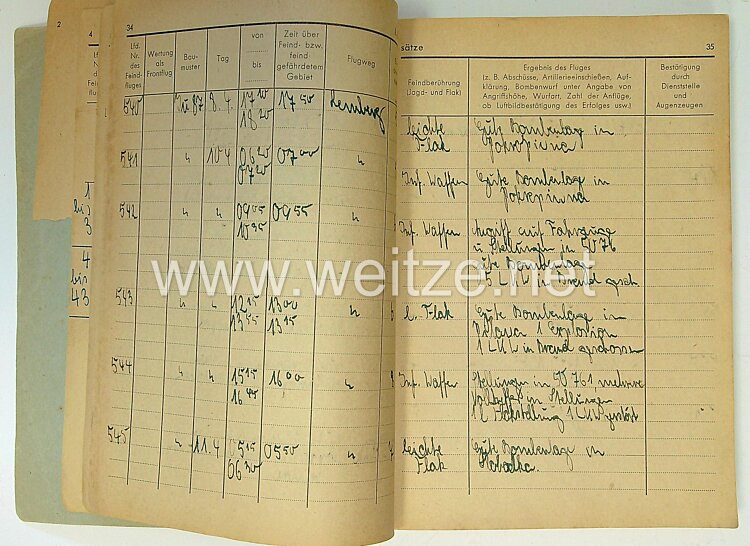 2
4
34
Lfd. Nr. des Feindfluges
Wertung als Frontflug
Baumuster
Tag
von
bis
Zeit über Feind- bzw. feind gefährdetem Gebiet
Flugweg
540 Ju 87 8.4. 17 20 17 50 Lemberg
18 20
541 " 10.4 06 20 07 00 "
07 20
542 " " 09 05 09 55 "
10 35
543 " " 12 15 13 00 "
13 35 13 15
544 " " 15 15 16 00 "
16 40
545 " 11.4 05 15 05 50 "
06 30
1
bis
3
4
bis
43
sätze
35
Feindberührung
(Jagd- und Flak)
Ergebnis des Fluges
(z. B. Abschüsse, Artillerieeinschießen, Auf-
klärung, Bombenwurf unter Angabe von
Angriffshöhe, Wurfart, Zahl der Anflüge,
ob Luftbildbestätigung des Erfolges usw.)
Bestätigung
durch
Dienststelle
und
Augenzeugen
leichte Gute Bombenlage in
Flak
Inf. Waffen Gute Bombenlage in
Inf. Waffen Angriff auf Fahrzeuge
u. Stellungen in
Gute Bombenlage
LKW in Brand gesch.
l. Flak Gute Bombenlage in
1 Explosion
1 LKW in Brand geschossen
Inf. Waffen Stellungen in mehrere
Volltreffer in Stellungen
1 LKW zerstört
leichte Gute Bombenlage in
Flak
www.weitze.net